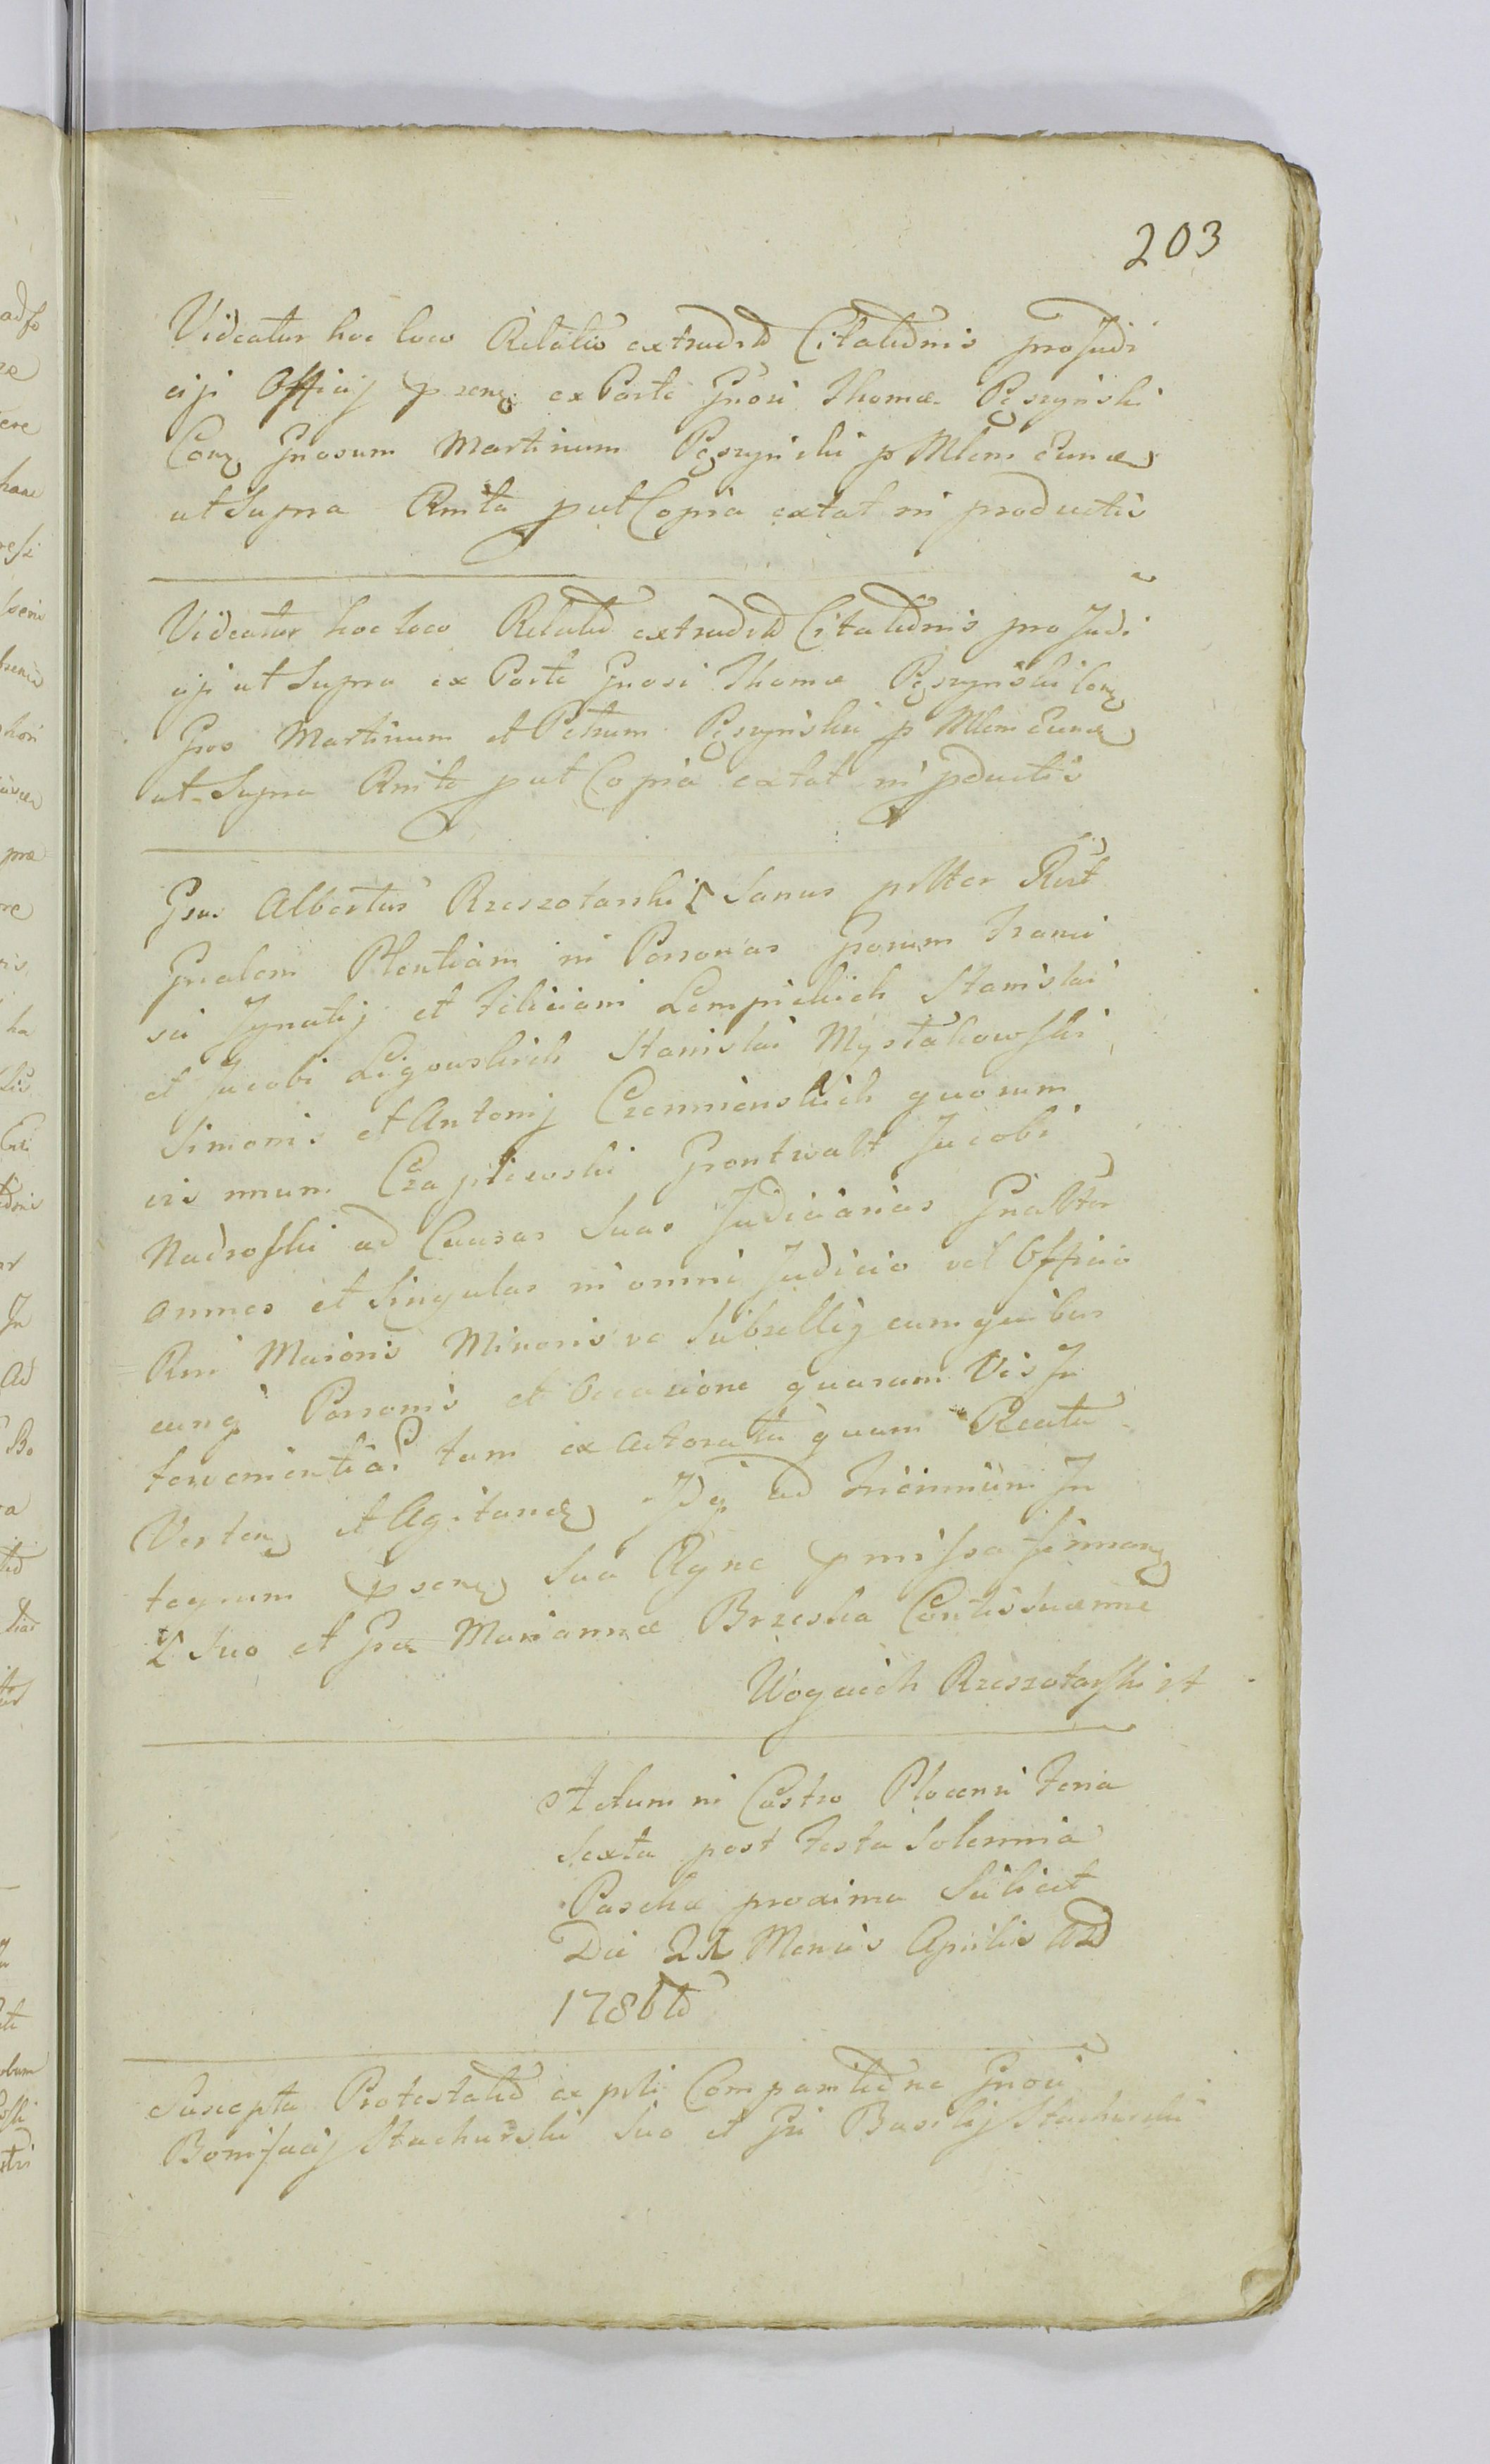 203
Videatur hoc loco Relatio extraditd Citatidnis pro Judi
cijs Officij psenz ex Parte Gnosi Thomæ Pęszyński
Conz Gnosum Martinum Pęszyński p Mlem Eund
ut Supra Rnita put Copia extat in productis
Videatur hoc loco Relatid extraditd Citatidnis pro Judi
cijs ut Supra ex Parte Gnosi Thomæ Pęszyński Conz
Gsos Martinum et Petrum Pęszyński p Mlem Eund
ut Supra Rnita put Copia extat in pductis
Gsus Albertus Rzeszotarski Sanus psltter Rert
Gnalem Plentiam in Personas Gsorum Franci
sci Ignatij et Feliciani Lempickich Stanislai
et Jacobi Ligowskich Stanislai Mystakowski
Simonis et Antonij Czermienskich quorum
vis unum Czaplewski Grontwalt Jacobi
Nadroski ad Causas Suas Judiciarias Gnaltter
omnes et Singulas in omni Judicio vel Officio
Rni Maioris Minoris ve Subsellij cum quibus
cunq Personis et Occasione quarum Vis In
tervenientias tam ex Actoratu quam Reatu
Verten et Agitand Idq ad Triennium In
tegrum psenz Sua Rgne pmissa firmanz
Suo et Gsæ Mariannæ Brzeska Contis suæ nne
Woyciech Rzeszotarski
Actum in Castro Plocensi Feria
Sexta post Festa Solennia
Paschæ proxima Scilicet
Die 21 Mensis Aprilis AD
1786to
Suscepta Protestatid ex psti Comparitidne Gnosi
Bonifacij Stachurski Suo et Gsi Basilij Stachurski